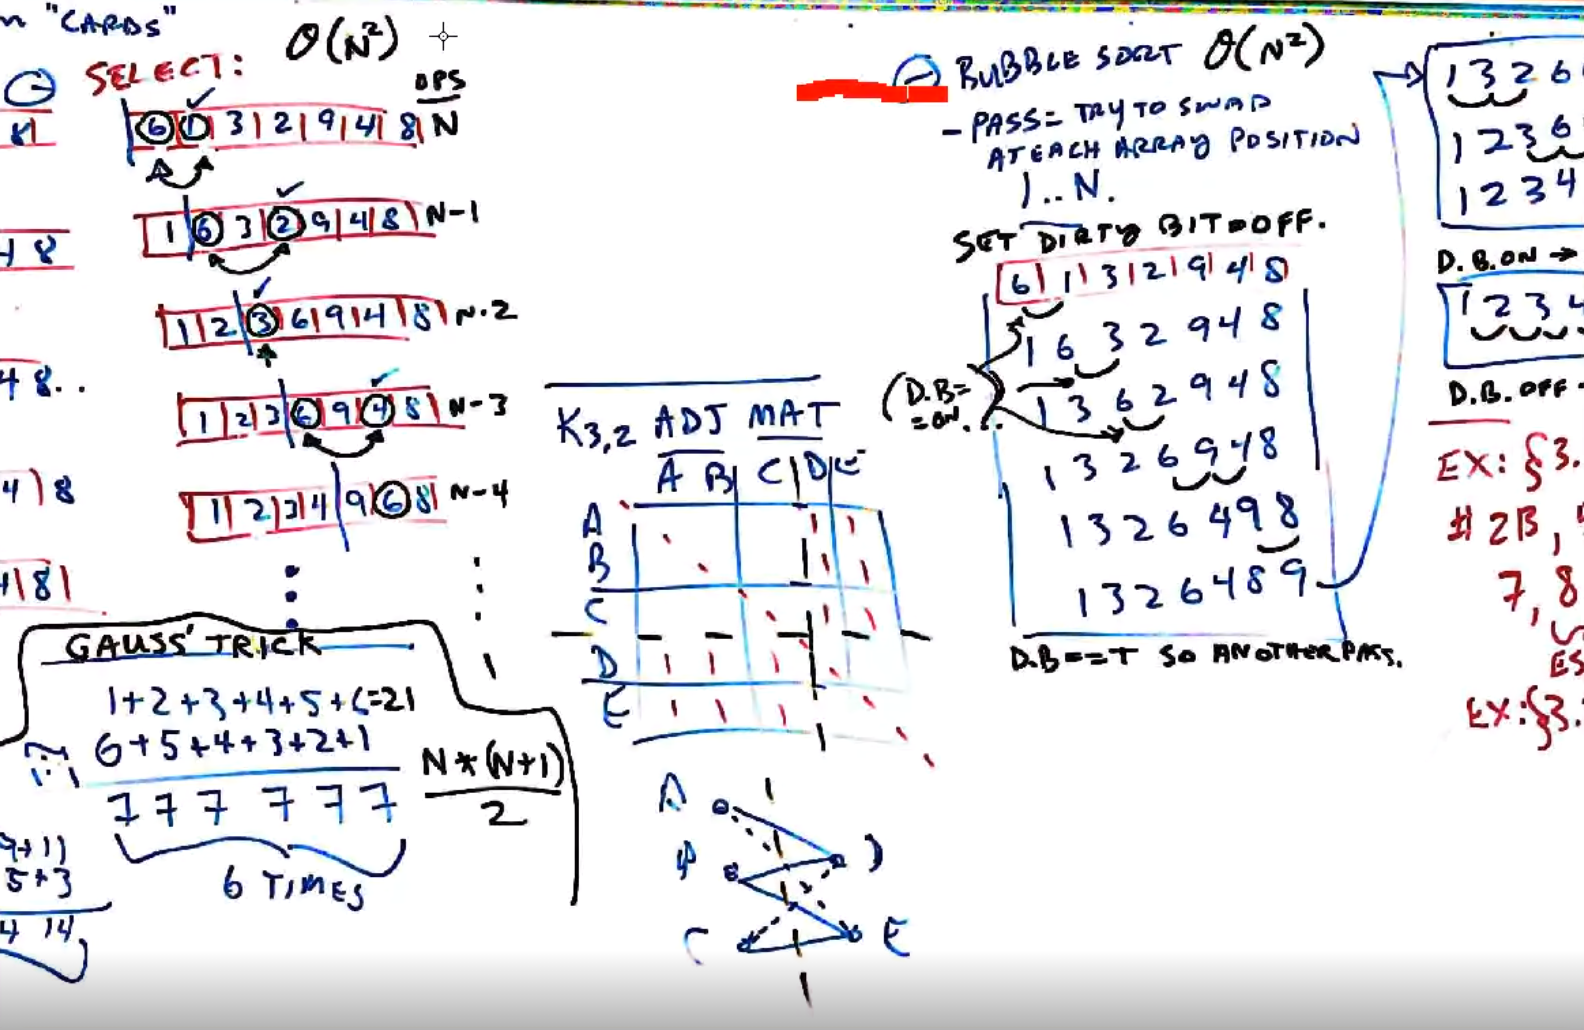 "CARDS"
SELECT: O(N²)
OPS
6 1 3 2 9 4 8 N
1 6 3 2 9 4 8 N-1
1 2 3 6 9 4 8 N-2
1 2 3 6 9 4 8 N-3
1 2 3 4 9 6 8 N-4
8
4 8
4 8..
4 8
8
GAUSS' TRICK
1+2+3+4+5+6=21
6+5+4+3+2+1
7 7 7 7 7 7
N*(N+1)
2
6 TIMES
9+11
5+3
4 14
K3,2 ADJ MAT
A B C D E
A 1 1
B 1 1
C 1 1
D 1 1 1
E 1 1 1
A
B D
C E
BUBBLE SORT O(N²)
- PASS= TRY TO SWAP
AT EACH ARRAY POSITION
1..N.
SET DIRTY BIT=OFF.
6 1 3 2 9 4 8
1 6 3 2 9 4 8
(D.B=
=ON.
1 3 6 2 9 4 8
1 3 2 6 9 4 8
1 3 2 6 4 9 8
1 3 2 6 4 8 9
D.B==T SO ANOTHER PASS.
1 3 2 6
1 2 3 6
1 2 3 4
D.B.ON →
1 2 3 4
D.B.OFF
EX: {3.
# 2B,
7, 8
ES
EX:{3.